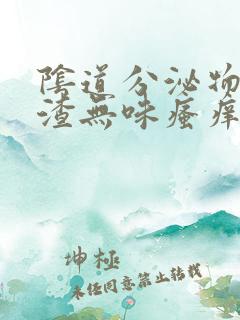 陰道分泌物
渣無味瘙痒
坤極
未经同意禁止转载